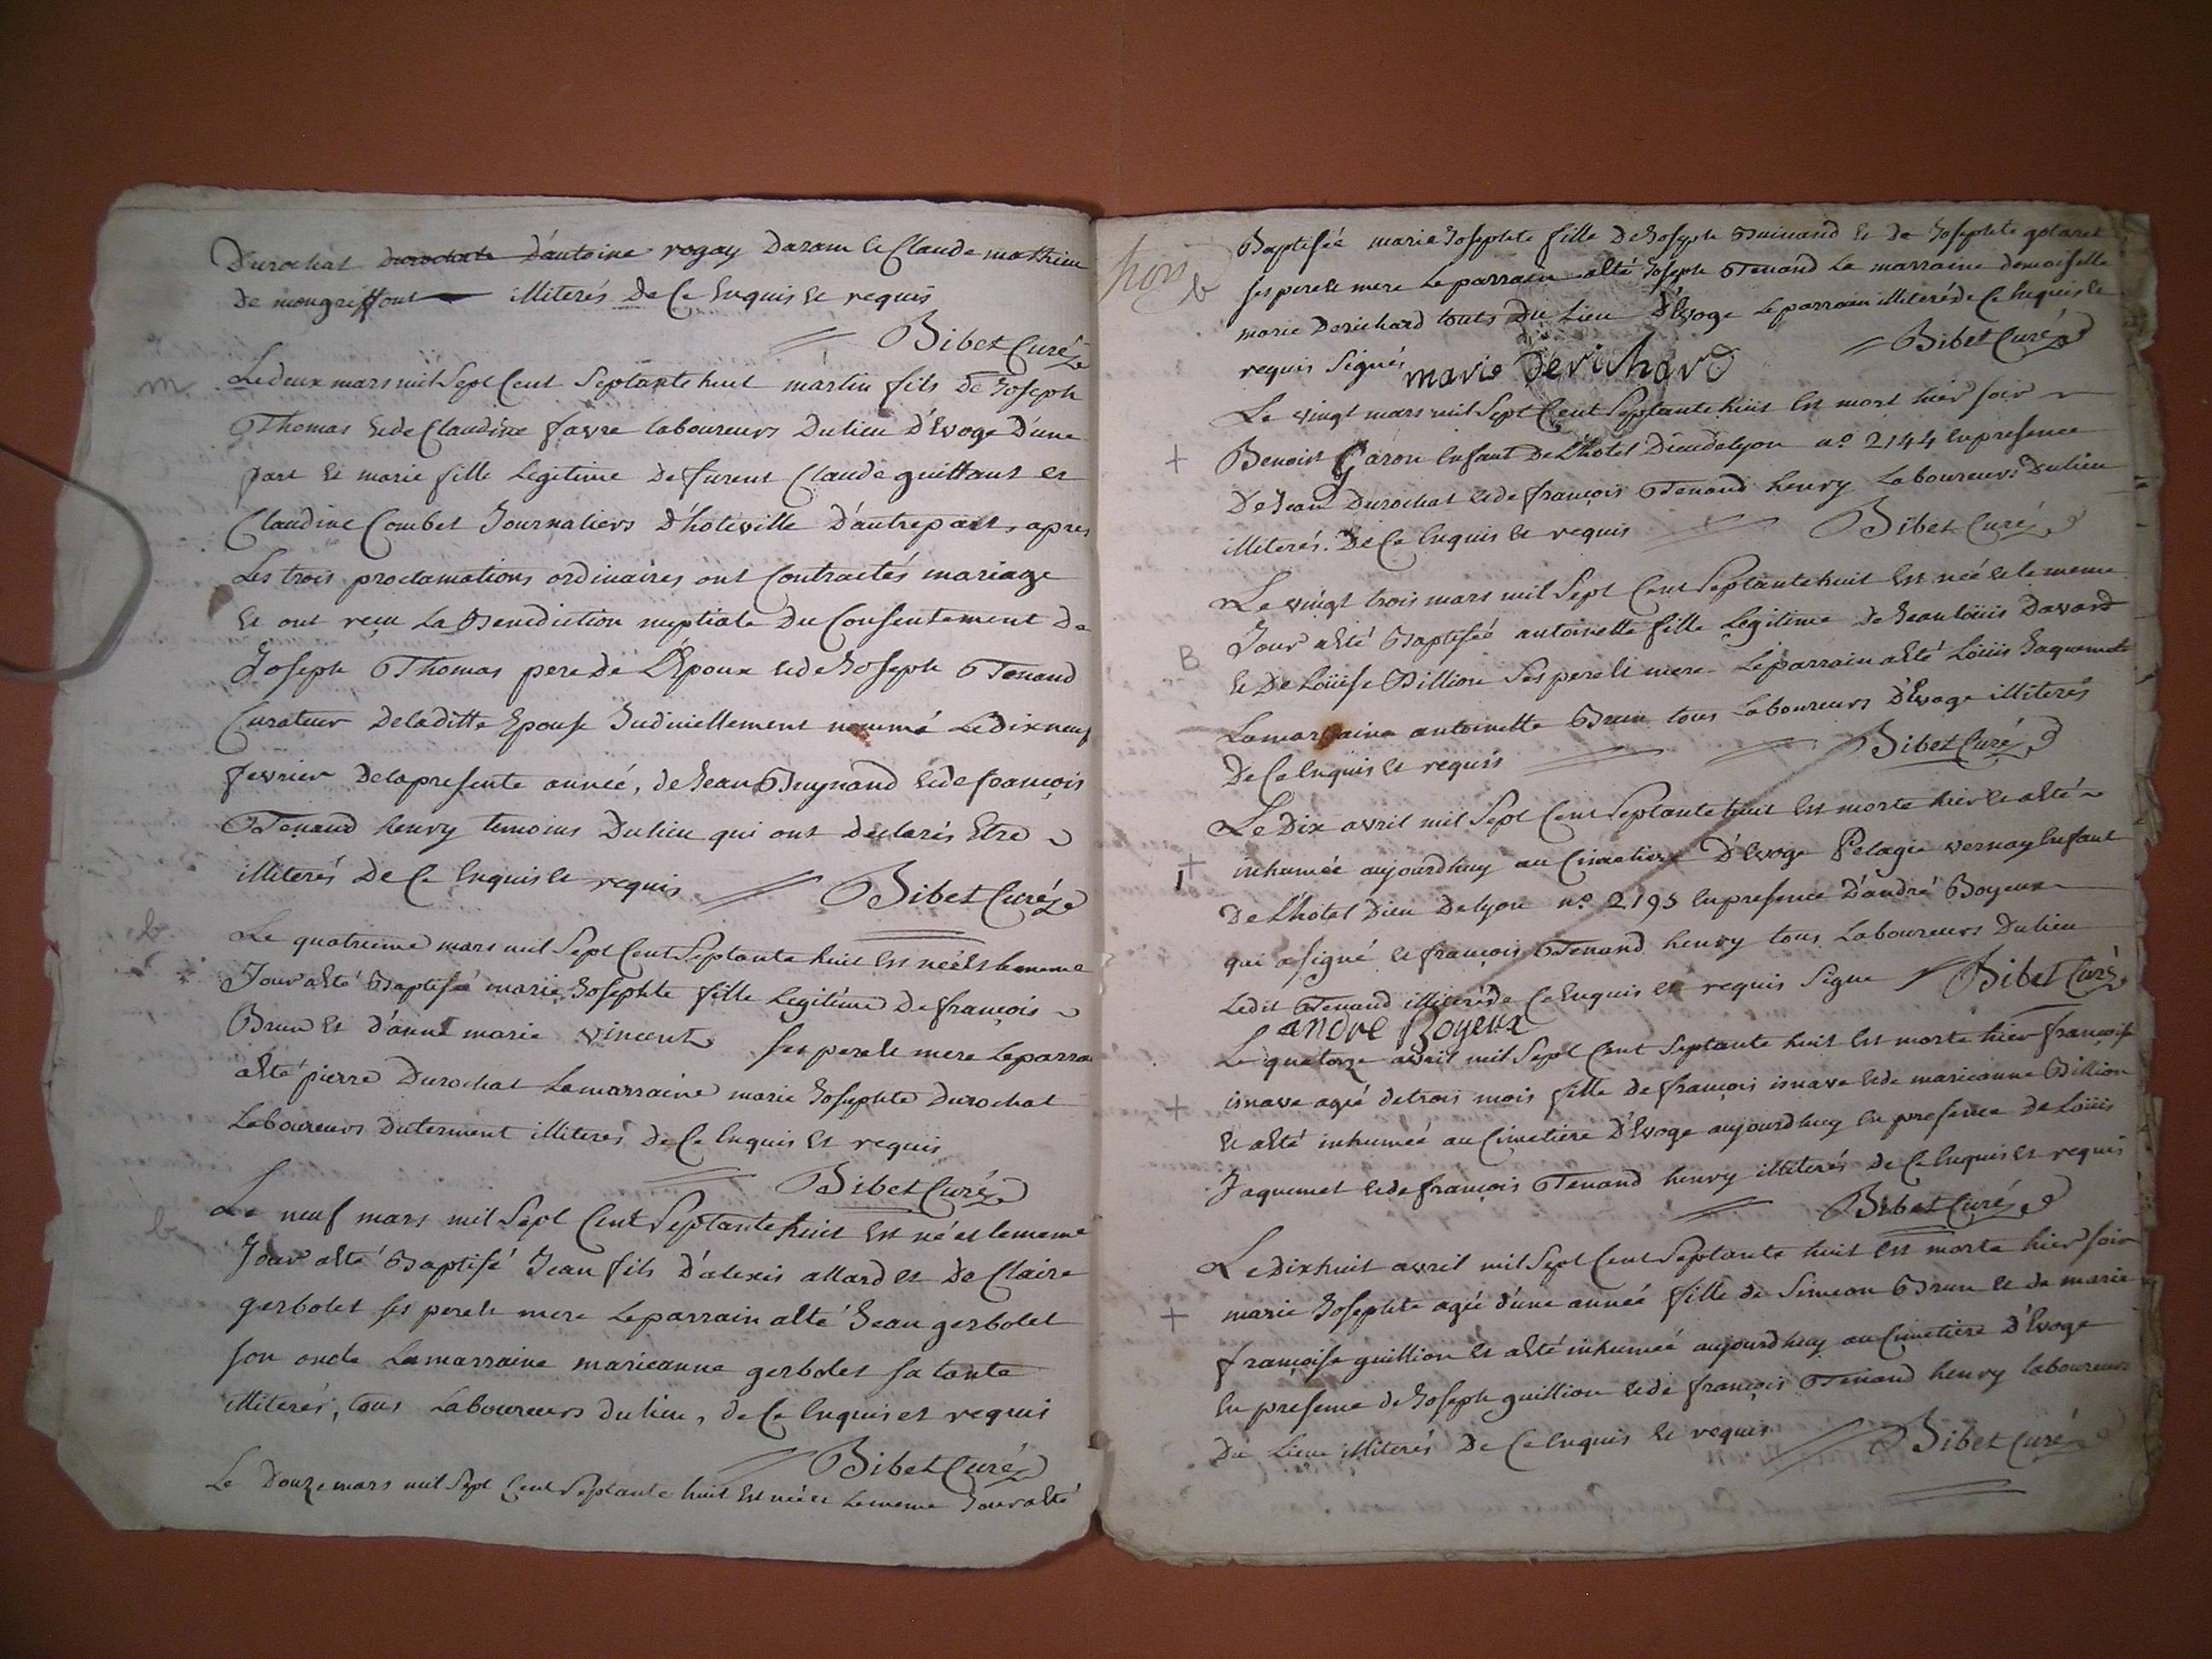 Durochat d'antoine rogay Daranc et Claude mathieu
de mongriffont illiterés De Ce Enquis et requis
Bibet Curé
m Le deux mars mil Sept Cent Septante huit martin fils De Joseph
Thomas et de Claudine favre laboureurs Du lieu D'Evoge D'une
part et marie fille Legitime De furent Claude guittant et
Claudine Combet Journaliers D'hoteville D'autre part, apres
Les trois proclamations ordinaires ont Contractés mariage
et ont reçu La Benediction nuptiale Du Consentement De
Joseph Thomas pere de L'Epoux et de Joseph Tenand
Curateur De laditte Epouse Judiciellement nommé Le Dix neuf
fevrier De la presente année, de Jean Guynand et de françois
Tenand henry temoins Du lieu qui ont declarés Etre
illiterés De Ce Enquis et requis Bibet Curé
b Le quatrieme mars mil Sept Cent Septante huit est née et le meme
Jour a eté Baptisée marie Josephte fille Legitime De françois
Brun et d'anne marie vincent ses pere et mere Le parrain
a eté pierre Durochat La marraine marie Josephte Durochat
Laboureurs Du terment illiterés de Ce Enquis et requis
Bibet Curé
b Le neuf mars mil Sept Cent Septante huit est né et le meme
Jour a eté Baptisé Jean fils d'alexis allard et De Claire
gerbolet ses pere et mere Le parrain a eté Jean gerbolet
son oncle La marraine marieanne gerbolet sa tante
illiterés, tous Laboureurs du lieu, de Ce Enquis et requis
Bibet Curé
Le Douze mars mil Sept Cent Septante huit est née et Le meme Jour a eté
b Baptisée marie Josephte fille De Joseph Guinand et De Josephte golaret
ses pere et mere Le parrain a eté Joseph Tenand La marraine demoiselle
marie Derichard touts Du Lieu D'Evoge Le parrain illiteré de Ce Enquis et
requis Signés marie Derichard Bibet Curé
Le vingt mars mil Sept Cent Septante huit est mort hier soir
+ Benoist Caron Enfant De L'hotel Dieu de lyon n.o 2144 En presence
De Jean Durochat et de françois Tenand henry Laboureurs Du lieu
illiterés. De Ce Enquis et requis Bibet Curé
Le vingt trois mars mil Sept Cent Septante huit est née et le meme
B Jour a eté Baptisée antoinette fille Legitime de Jean loüis Davard
et De Loüise Billion Ses pere et mere Le parrain a eté Loüis Jaquemet
La marraine antoinette Brun tous Laboureurs D'Evoge illiterés
De Ce Enquis et requis Bibet Curé
Le Dix avril mil Sept Cent Septante huit est morte hier et a eté
+ inhumée aujourdhuy au Cimetiere D'Evoge Pelagie vernay Enfant
De L'hotel Dieu De lyon n.o 2195 En presence D'andré Boyeux
qui a signé et françois Tenand henry tous Laboureurs Du lieu
Ledit Tenand illiteré De Ce Enquis et requis Signe Bibet Curé
andre Boyeux
Le quatorze avril mil Sept Cent Septante huit est morte hier françoise
+ isnave agée de trois mois fille de françois isnave et de marieanne Billion
et a eté inhumée au Cimetiere D'Evoge aujourdhuy En presence De Loüis
Jaquemet et de françois Tenand henry illiterés De Ce Enquis et requis
Bibet Curé
Le Dix huit avril mil Sept Cent Septante huit est morte hier soir
+ marie Josephte agée d'une année fille de Simeon Brun et de marie
françoise guillion et a eté inhumée aujourdhuy au Cimetiere D'Evoge
En presence de Joseph guillion et de françois Tenand henry laboureurs
Du Lieu illiterés De Ce Enquis et requis Bibet Curé